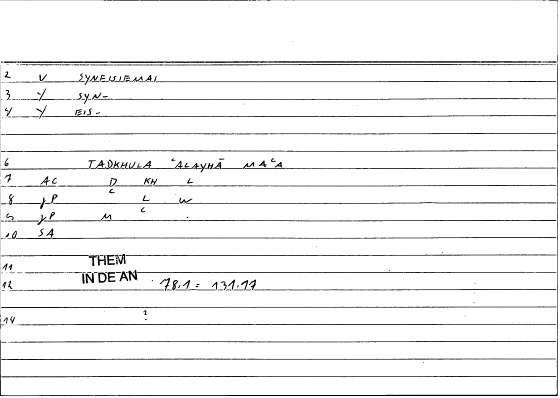 2 V SYNEISIEMAI
3 Y SYN-
4 Y EIS-
6 TADKHULA ʿALAYHĀ MAʿA
7 AC D KH L
8 ʿ L W
9 M ʿ .
10 SA
11 THEM
IN DE AN
12 78.1 = 131.17
14 ?